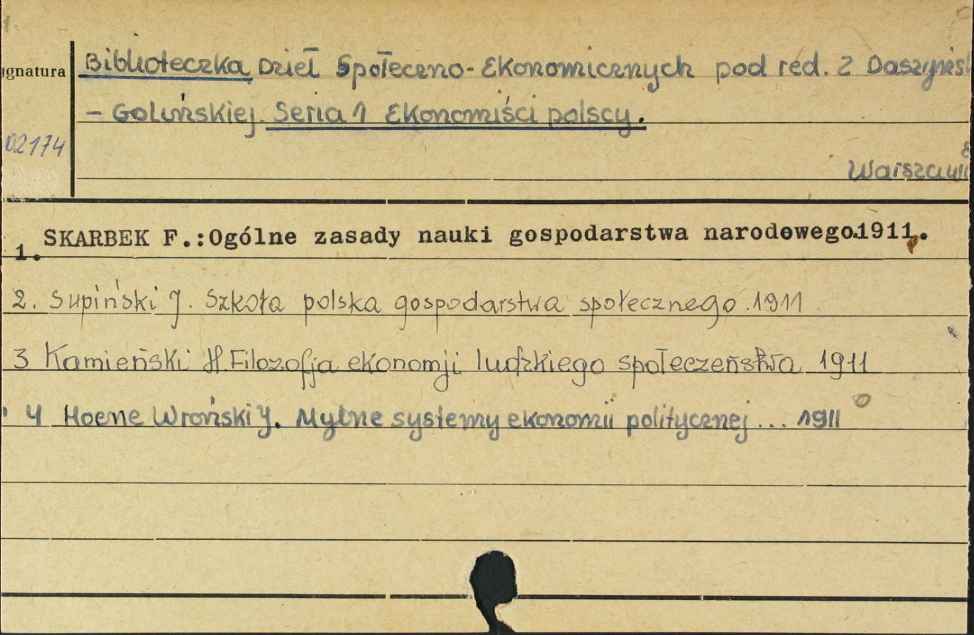 ignatura
Biblioteczka Dzieł Społeczno-Ekonomicznych pod red. Z Daszyńsk
- Golińskiej Seria 1 Ekonomiści polscy.
02174
Warszawa
1. SKARBEK F.:Ogólne zasady nauki gospodarstwa narodowego.1911.
2. Supiński J. Szkoła polska gospodarstwa społecznego. 1911
3 Kamieński H Filozofja ekonomji ludzkiego społeczeństwa 1911
4 Hoene Wroński J. Mylne systemy ekonomii politycznej ... 1911